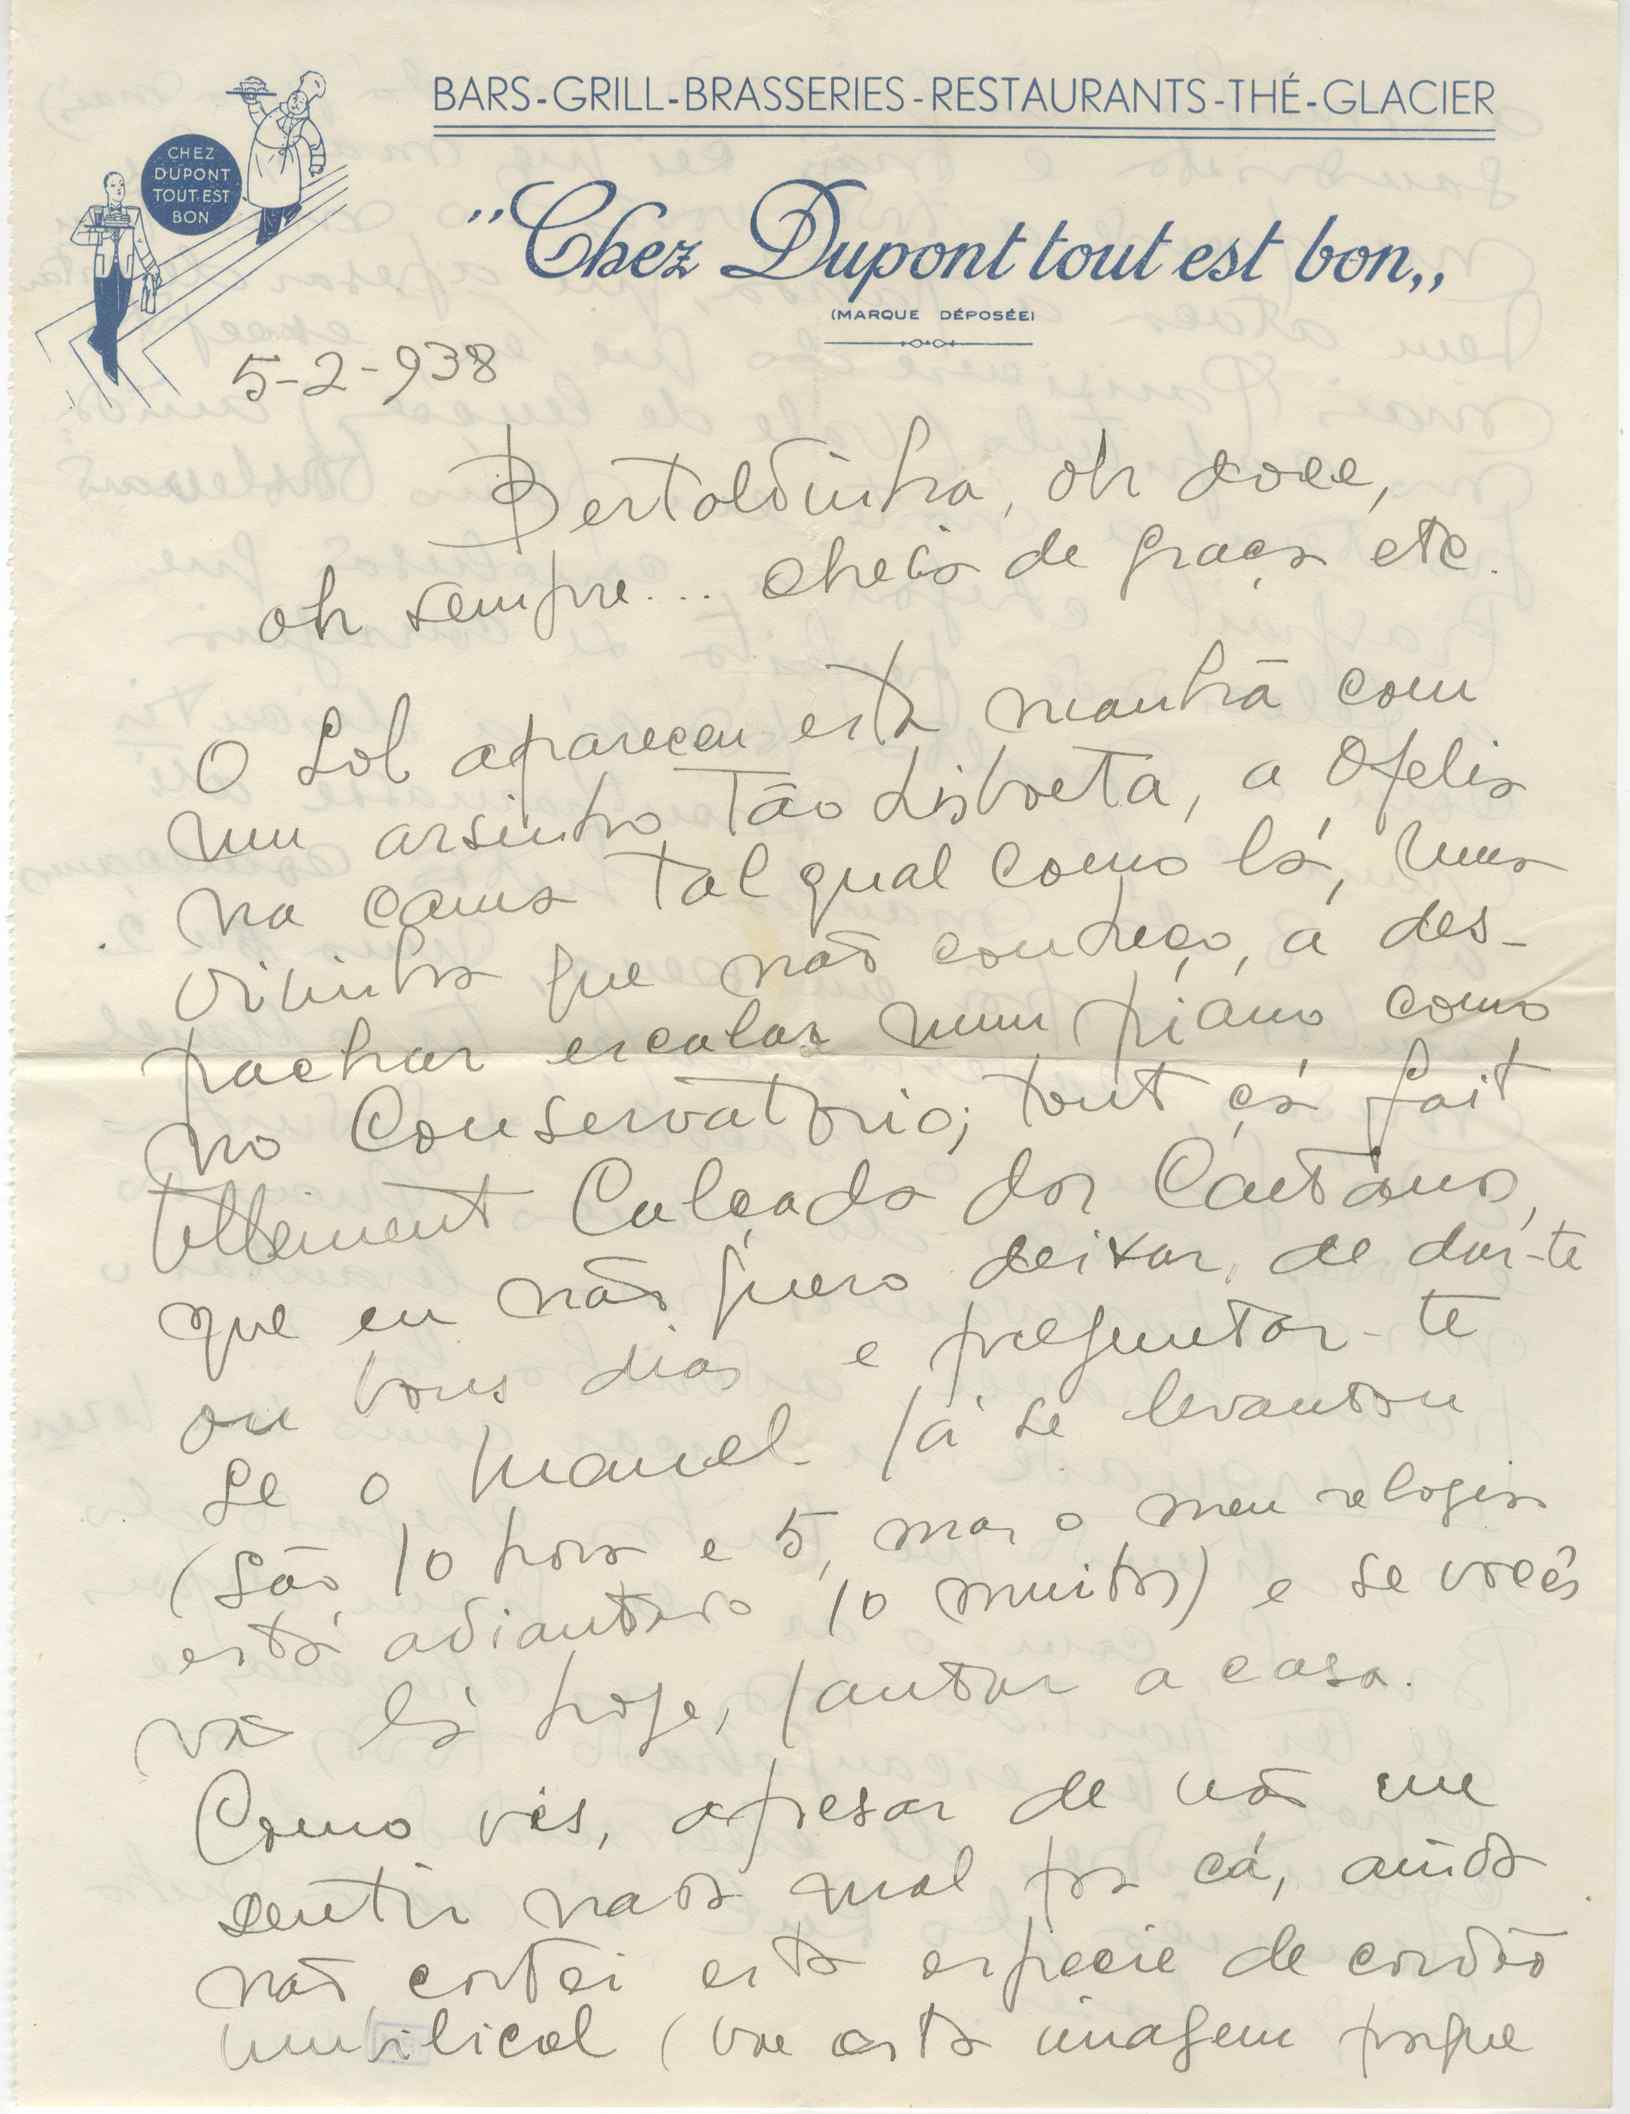 BARS-GRILL-BRASSERIES-RESTAURANTS-THÉ-GLACIER
CHEZ
DUPONT
TOUT EST
BON
"Chez Dupont tout est bon„
(MARQUE DÉPOSÉE)
5-2-938
Bertoldinha, oh doce,
oh sempre... cheia de graça etc.
O Sol apareceu esta manhã com
um arsinho tão Lisboeta, a Ofelia
na cama tal qual como lá, uma
visinha que não conheço, a des-
pachar escalas num piano como
no Conservatorio; tout çá fait
tellement Calçada dos Caetanos,
que eu não quero deixar de dar-te
os bons dias e preguntar-te
se o Manuel já se levantou
(são 10 hora e 5, mas o meu relogio
está adiantado 10 minutos) e se vocês
vão lá hoje, jantar a casa.
Como vês, apesar de não me
sentir nada mal por cá, ainda
não cortei esta especie de cordão
umbilical (vae esta imagem porque